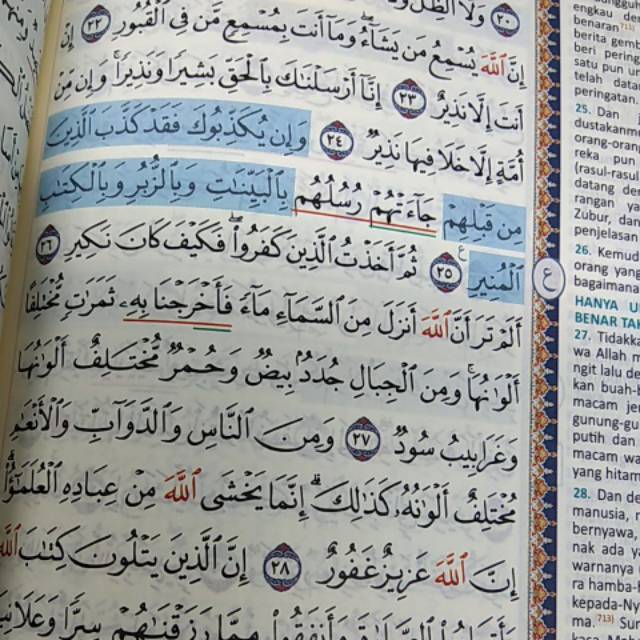 ٢٠ وَلَا ٱلظِّلُّ
إِنَّ ٱللَّهَ يُسْمِعُ مَن يَشَآءُ ۖ وَمَآ أَنتَ بِمُسْمِعٍ مَّن فِى ٱلْقُبُورِ ٢٢ إِنْ
أَنتَ إِلَّا نَذِيرٌ ٢٣ إِنَّآ أَرْسَلْنَٰكَ بِٱلْحَقِّ بَشِيرًا وَنَذِيرًا ۚ وَإِن مِّنْ
أُمَّةٍ إِلَّا خَلَا فِيهَا نَذِيرٌ ٢٤ وَإِن يُكَذِّبُوكَ فَقَدْ كَذَّبَ ٱلَّذِينَ
مِن قَبْلِهِمْ جَآءَتْهُمْ رُسُلُهُم بِٱلْبَيِّنَٰتِ وَبِٱلزُّبُرِ وَبِٱلْكِتَٰبِ
ٱلْمُنِيرِ ٢٥ ثُمَّ أَخَذْتُ ٱلَّذِينَ كَفَرُوا۟ ۖ فَكَيْفَ كَانَ نَكِيرِ ٢٦
أَلَمْ تَرَ أَنَّ ٱللَّهَ أَنزَلَ مِنَ ٱلسَّمَآءِ مَآءً فَأَخْرَجْنَا بِهِۦ ثَمَرَٰتٍ مُّخْتَلِفًا
أَلْوَٰنُهَا ۚ وَمِنَ ٱلْجِبَالِ جُدَدٌۢ بِيضٌ وَحُمْرٌ مُّخْتَلِفٌ أَلْوَٰنُهَا
وَغَرَابِيبُ سُودٌ ٢٧ وَمِنَ ٱلنَّاسِ وَٱلدَّوَآبِّ وَٱلْأَنْعَٰمِ
مُخْتَلِفٌ أَلْوَٰنُهُۥ كَذَٰلِكَ ۗ إِنَّمَا يَخْشَى ٱللَّهَ مِنْ عِبَادِهِ ٱلْعُلَمَٰٓؤُا۟ ۗ
إِنَّ ٱللَّهَ عَزِيزٌ غَفُورٌ ٢٨ إِنَّ ٱلَّذِينَ يَتْلُونَ كِتَٰبَ ٱللَّهِ
وَأَقَامُوا۟ ٱلصَّلَوٰةَ وَأَنفَقُوا۟ مِمَّا رَزَقْنَٰهُمْ سِرًّا وَعَلَانِيَةً
ع
engkau da
benaran 713)
berita gem
beri pering
satu pun u
telah data
peringatan
25. Dan
dustakanm
orang-oran
reka pun
(rasul-rasul
datang de
rangan ya
Zubur, dan
penjelasan
26. Kemud
orang yang
bagaimana
HANYA U
BENAR TA
27. Tidakka
wa Allah m
ngit lalu de
kan buah-b
macam je
gunung-gu
putih dan
macam wa
yang hitam
28. Dan de
manusia, m
bernyawa,
nak ada ya
warnanya (
ra hamba-h
kepada-Ny
ma.713) Su